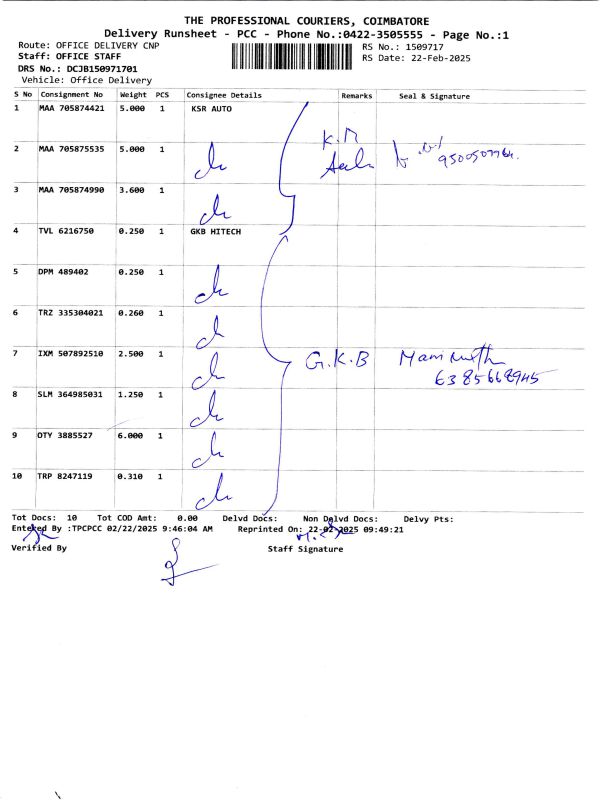 THE PROFESSIONAL COURIERS, COIMBATORE
Delivery Runsheet - PCC - Phone No.:0422-3505555 - Page No.:1
Route: OFFICE DELIVERY CNP RS No.: 1509717
Staff: OFFICE STAFF RS Date: 22-Feb-2025
DRS No.: DCJB150971701
Vehicle: Office Delivery
S No Consignment No Weight PCS Consignee Details Remarks Seal & Signature
1 MAA 705874421 5.000 1 KSR AUTO
2 MAA 705875535 5.000 1
3 MAA 705874990 3.600 1
4 TVL 6216750 0.250 1 GKB HITECH
5 DPM 489402 0.250 1
6 TRZ 335304021 0.260 1
7 IXM 507892510 2.500 1 G.K.B
6385668945
8 SLM 364985031 1.250 1
9 OTY 3885527 6.000 1
10 TRP 8247119 0.310 1
Tot Docs: 10 Tot COD Amt: 0.00 Delvd Docs: Non Delvd Docs: Delvy Pts:
Entered By :TPCPCC 02/22/2025 9:46:04 AM Reprinted On: 22-02-2025 09:49:21
Verified By Staff Signature